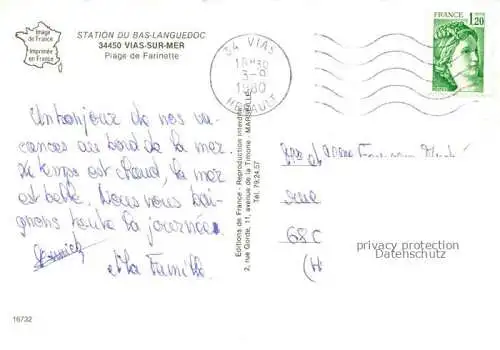 Image
de France
Imprimée
en France
STATION DU BAS-LANGUEDOC
34450 VIAS-SUR-MER
Plage de Farinette
34 VIAS
18H30
3-9
1980
HERAULT
FRANCE
1,20
Un bonjour de nos va-
cances au bord de la mer.
Le temps est chaud, la mer
est belle. Nous nous bai-
gnons toute la journée.
et la Famille
Editions de France - Reproduction interdite
2, rue Gorde, 11, avenue de la Timone - MARSEILLE
Tél. 79.24.57
rue
68
privacy protection
Datenschutz
16732